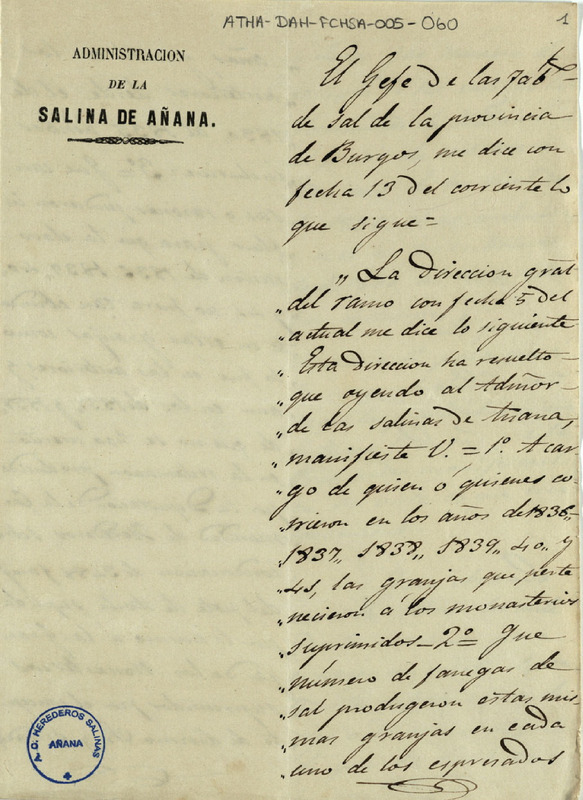 ATHA-DAH-FCHSA-005-060
1
ADMINISTRACION
DE LA
SALINA DE AÑANA.
El Gefe de las Fabs
de sal de la provincia
de Burgos, me dice con
fecha 13 del corriente lo
que sigue=
„ La Direccion gral
„ del ramo con fecha 5 del
„ actual me dice lo siguiente
„ Esta direccion ha resuelto
„ que oyendo al Admor
„ de las salinas de Añana,
„ manifieste V. = 1º. A car
„ go de quien ó quienes co
„ rrieron en los años de 1836„
„ 1837„ 1838„ 1839„ 40„ y
„ 41, las granjas que perte
„ necieron á los monasterios
„ suprimidos_ 2º= Que
„ número de fanegas de
„ sal produgeron estas mis
„ mas granjas en cada
„ uno de los espresados
A. C. HEREDEROS SALINAS
AÑANA